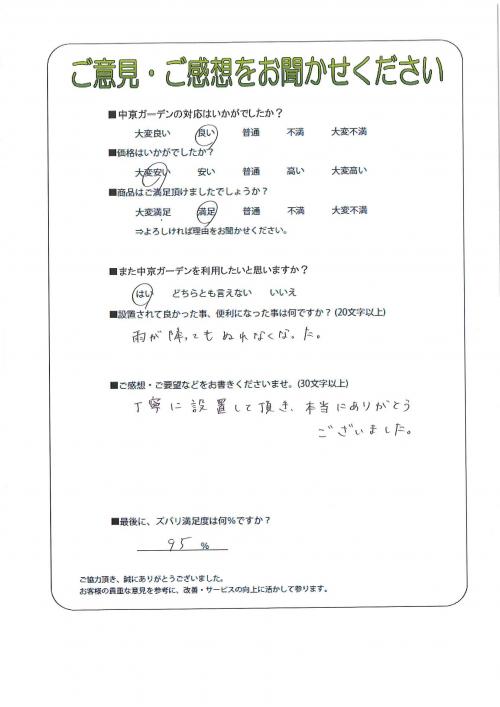 ご意見・ご感想をお聞かせください
■中京ガーデンの対応はいかがでしたか？
大変良い 良い 普通 不満 大変不満
■価格はいかがでしたか？
大変安い 安い 普通 高い 大変高い
■商品はご満足頂けましたでしょうか？
大変満足 満足 普通 不満 大変不満
⇒よろしければ理由をお聞かせください。
■また中京ガーデンを利用したいと思いますか？
はい どちらとも言えない いいえ
■設置されて良かった事、便利になった事は何ですか？(20文字以上)
雨が降ってもぬれなくなった。
■ご感想・ご要望などをお書きくださいませ。(30文字以上)
丁寧に設置して頂き、本当にありがとう
ございました。
■最後に、ズバリ満足度は何%ですか？
95 %
ご協力頂き、誠にありがとうございました。
お客様の貴重な意見を参考に、改善・サービスの向上に活かして参ります。